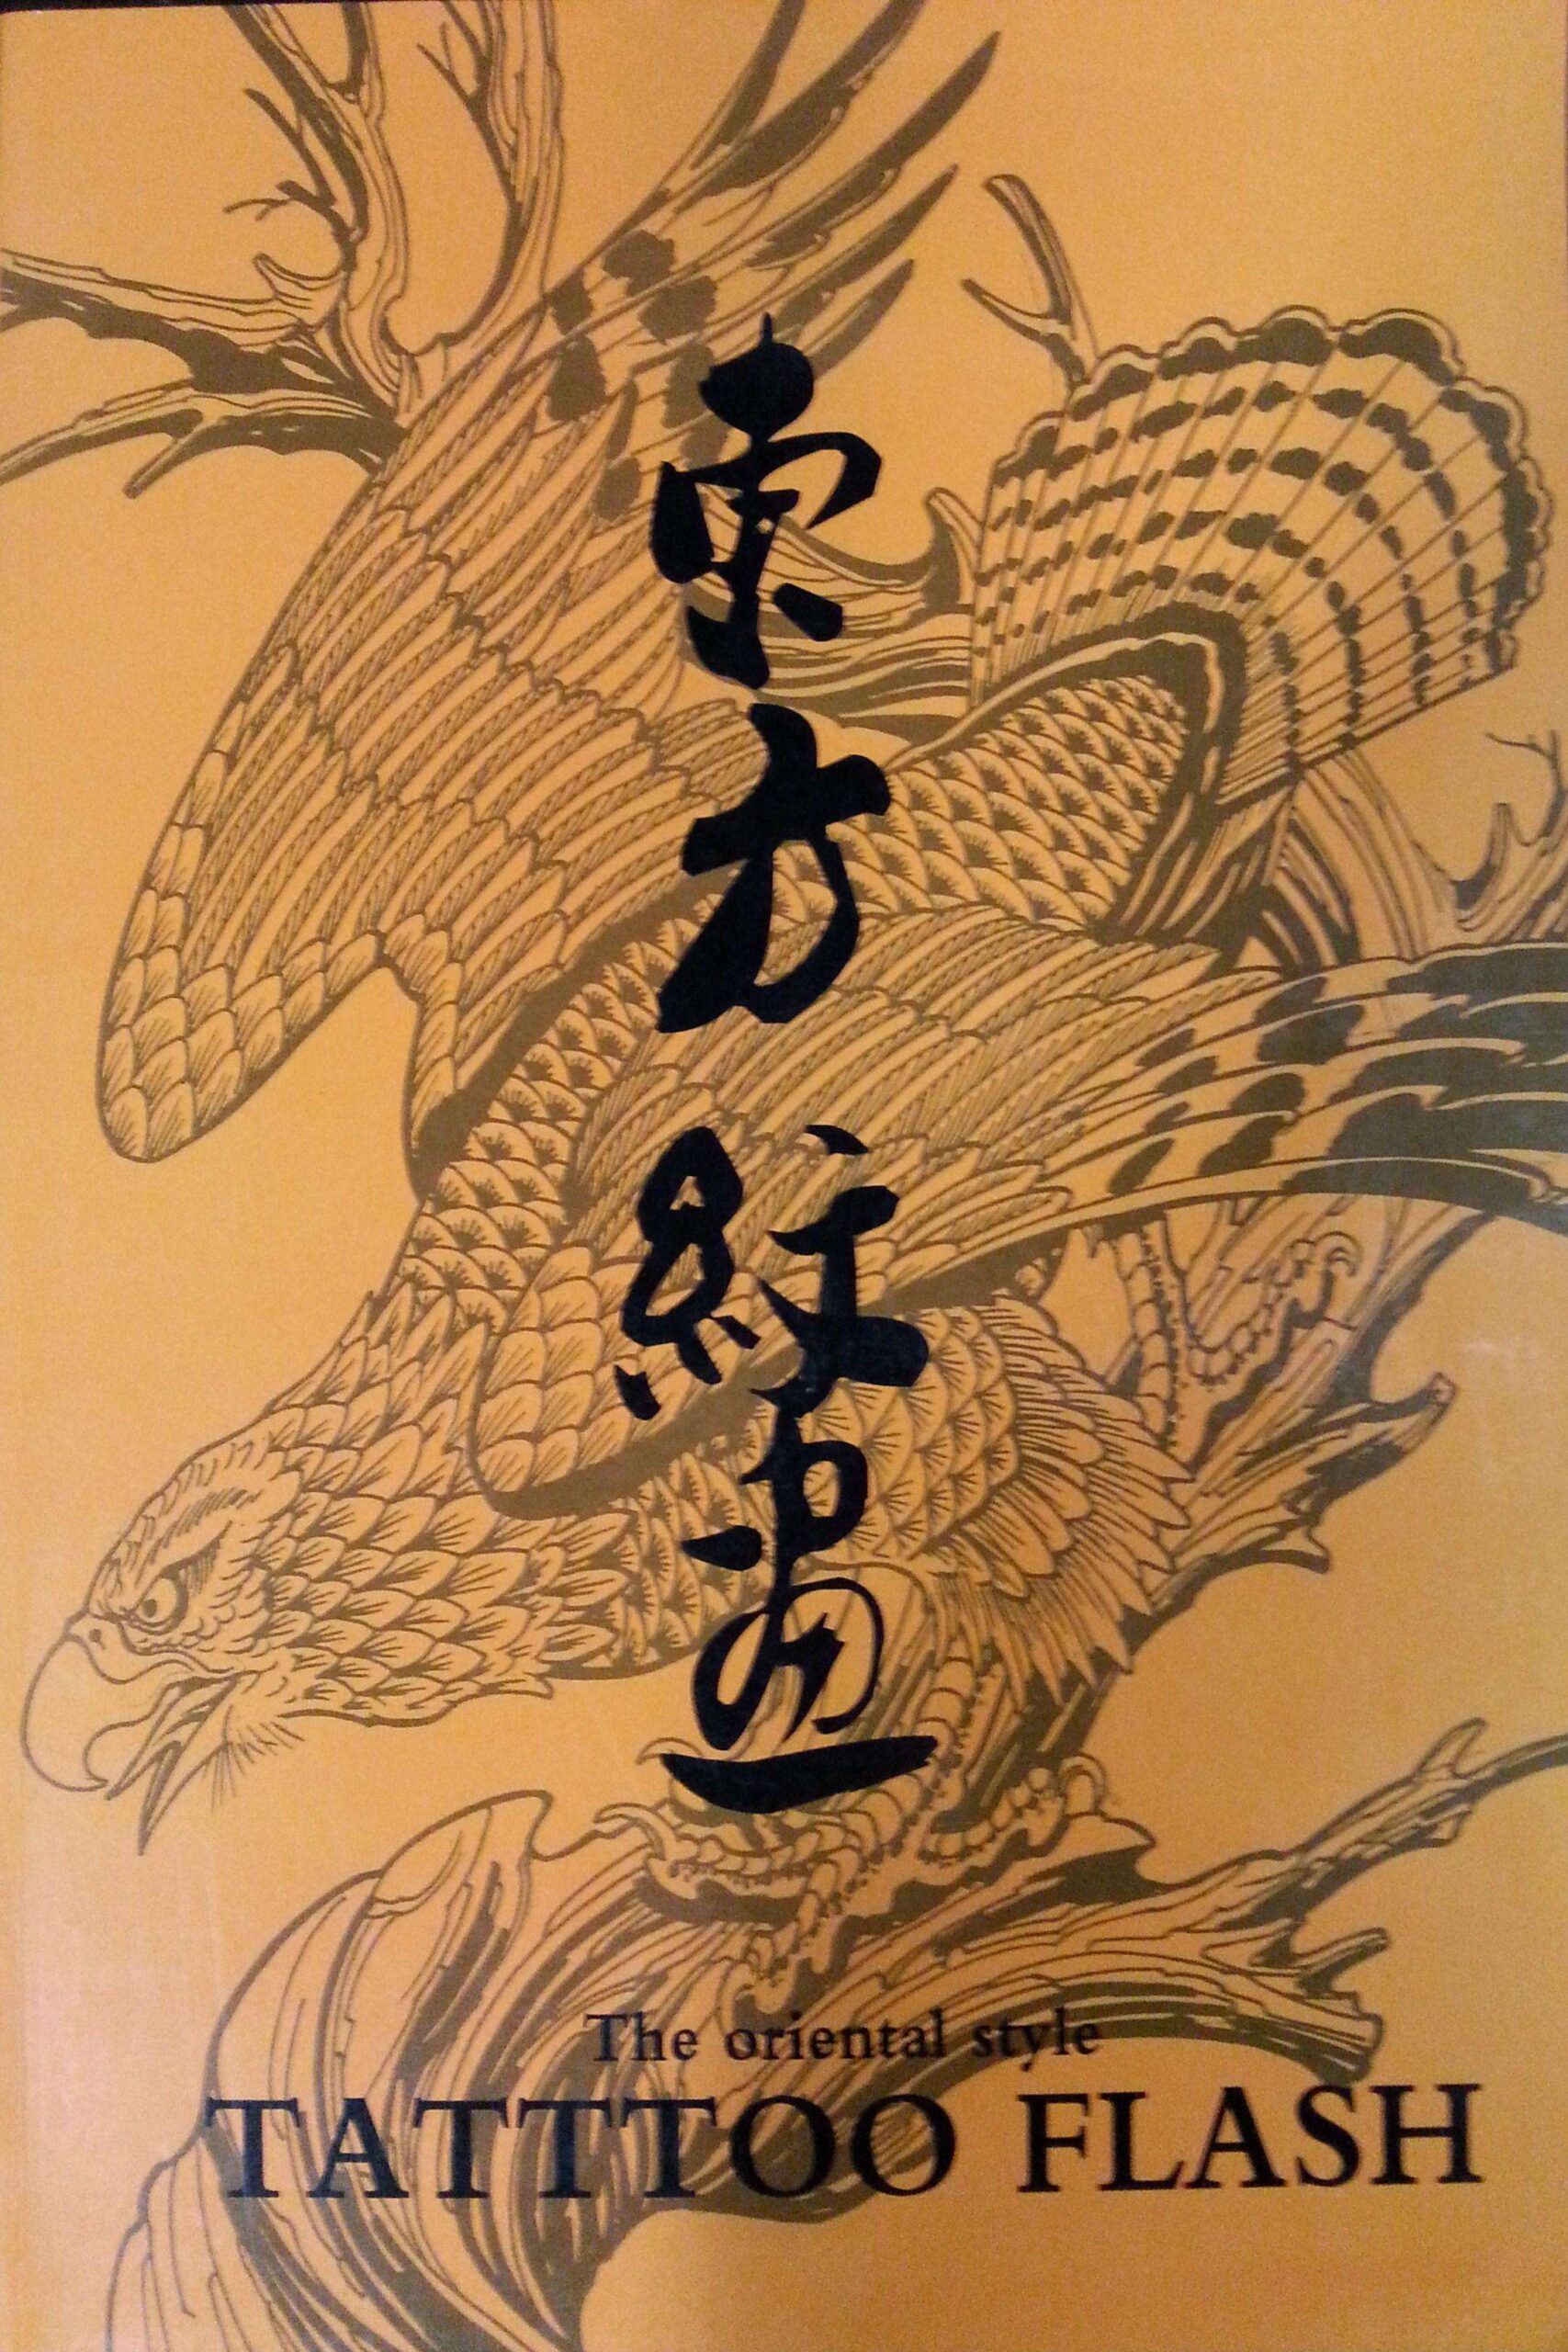 東方紋畫
The oriental style
TATTTOO FLASH